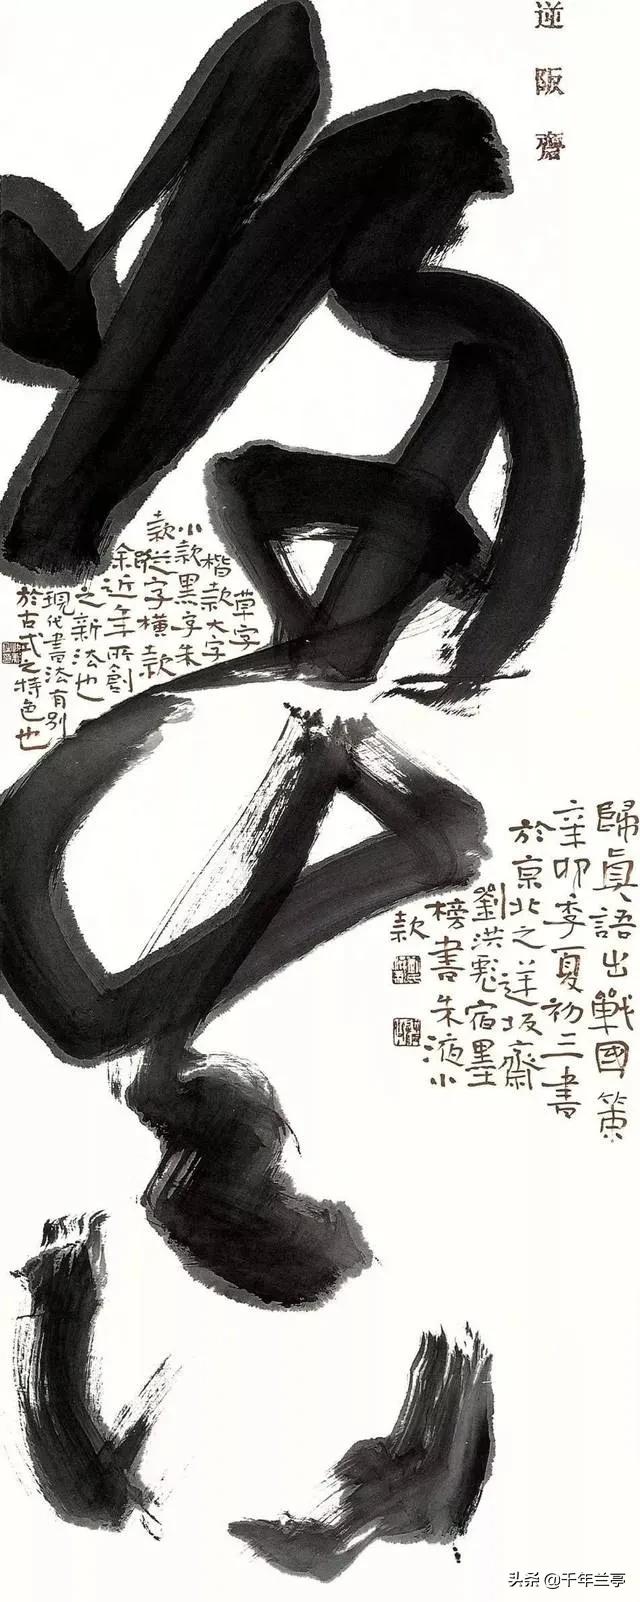 逆阪齋
歸眞
歸眞語出戰國策
辛卯季夏初三書
於京北之逆坂齋
劉洪彪宿墨
榜書朱液小
款
草字
楷款大字
小款黑字朱
款縱字橫款
余近年所創
之新法也
現代書法有別
於古式之特色也
头条 @千年兰亭